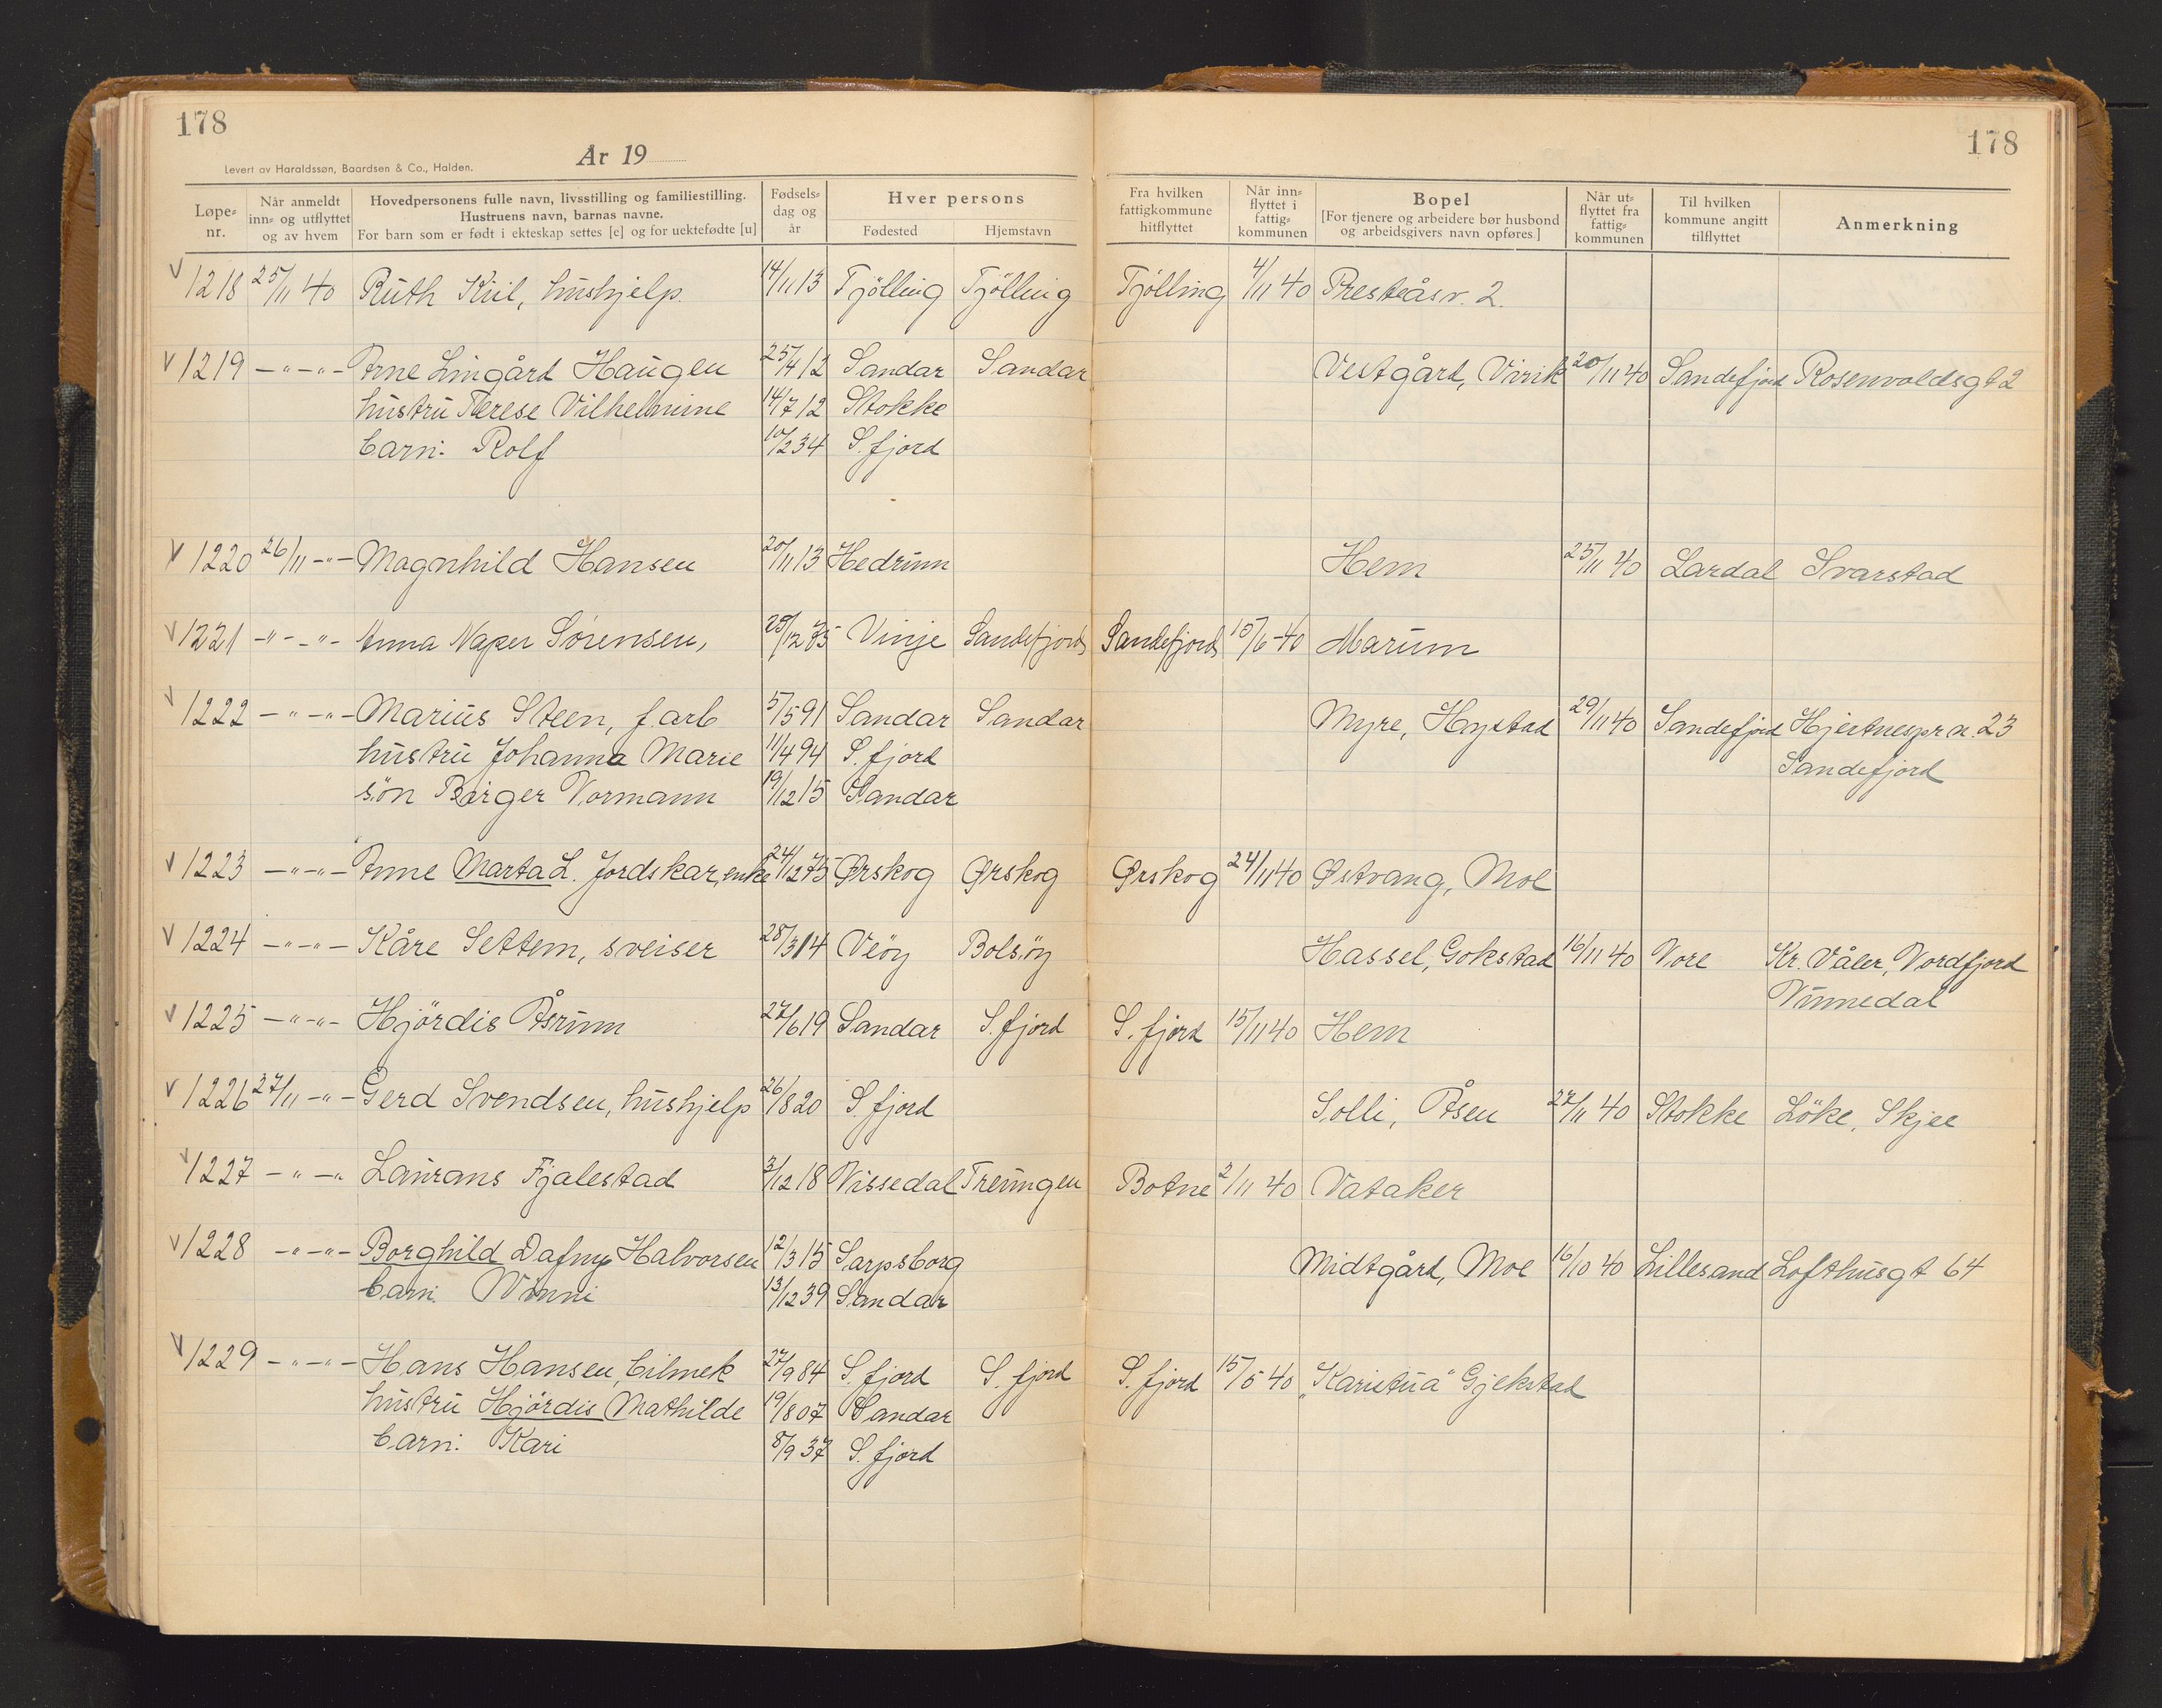 178
178
Levert av Haraldssøn, Baardsen & Co., Halden.
År 19
Løpe-nr.
Når anmeldt inn- og utflyttet og av hvem
Hovedpersonens fulle navn, livsstilling og familiestilling. Hustruens navn, barnas navne. For barn som er født i ekteskap settes [e] og for uektefødte [u]
Fødsels-dag og år
Hver persons
Fødested
Hjemstavn
Fra hvilken fattigkommune hitflyttet
Når inn-flyttet i fattig-kommunen
Bopel
[For tjenere og arbeidere bør husbond og arbeidsgivers navn opføres]
Når ut-flyttet fra fattig-kommunen
Til hvilken kommune angitt tilflyttet
Anmerkning
V 1218 25/11 40 Ruth Kiil, hushjelp. 14/11 13 Tjölling Tjölling Tjölling 4/11 40 Presteåsv. 2.
V 1219 -"-"- Arne Lingård Haugen 25/4 12 Sandar Sandar Vestgård, Virik 20/11 40 Sandefjord Rosenvoldsgt 2
hustru Terese Vilhelmine 14/7 12 Stokke
barn: Rolf 10/2 34 S.fjord
V 1220 26/11 -"- Magnhild Hansen 20/11 13 Hedrum Hem 25/11 40 Lardal Svarstad
V 1221 -"-"- Anna Naper Sörensen, 25/12 Vinje Sandefjord Sandefjord 15/6-40 Marum
V 1222 -"-"- Marius Steen, f.arb 5/5 91 Sandar Sandar Myre, Hystad 29/11 40 Sandefjord Hjertnespr.n. 23
hustru Johanna Marie 11/4 94 S.fjord Sandefjord
sön Birger Normann 19/12 15 Sandar
V 1223 -"-"- Anne Marta L. Jordskar, enke 24/12 75 Ørskog Ørskog Ørskog 24/11 40 Østvang, Moe
V 1224 -"-"- Kåre Settem, sveiser 28/3 14 Veöy Bolsöy Hassel, Gokstad 16/11 40 Nore Kr. Våler, Nordfjord
V 1225 -"-"- Hjördis Åsrum 27/6 19 Sandar S.fjord S.fjord 15/11 40 Hem
V 1226 27/11 -"- Gerd Svendsen, hushjelp 26/8 20 S.fjord Solli, Åsen 27/11 40 Stokke Löke, Skjee
V 1227 -"-"- Laurans Fjalestad 3/12 18 Nissedal Treungen Botne 2/11 40 Vataker
V 1228 -"-"- Borghild Dafny Halvorsen 12/3 15 Sarpsborg Midtgård, Moe 16/10 40 Lillesand Lofthusgt 64
barn: Winni 13/12 39 Sandar
V 1229 -"-"- Hans Hansen, bilmek 27/9 84 S.fjord S.fjord S.fjord 15/5 40 "Karistua" Gjekstad
hustru Hjördis Mathilde 19/8 07 Sandar
barn: Kari 8/9 37 S.fjord